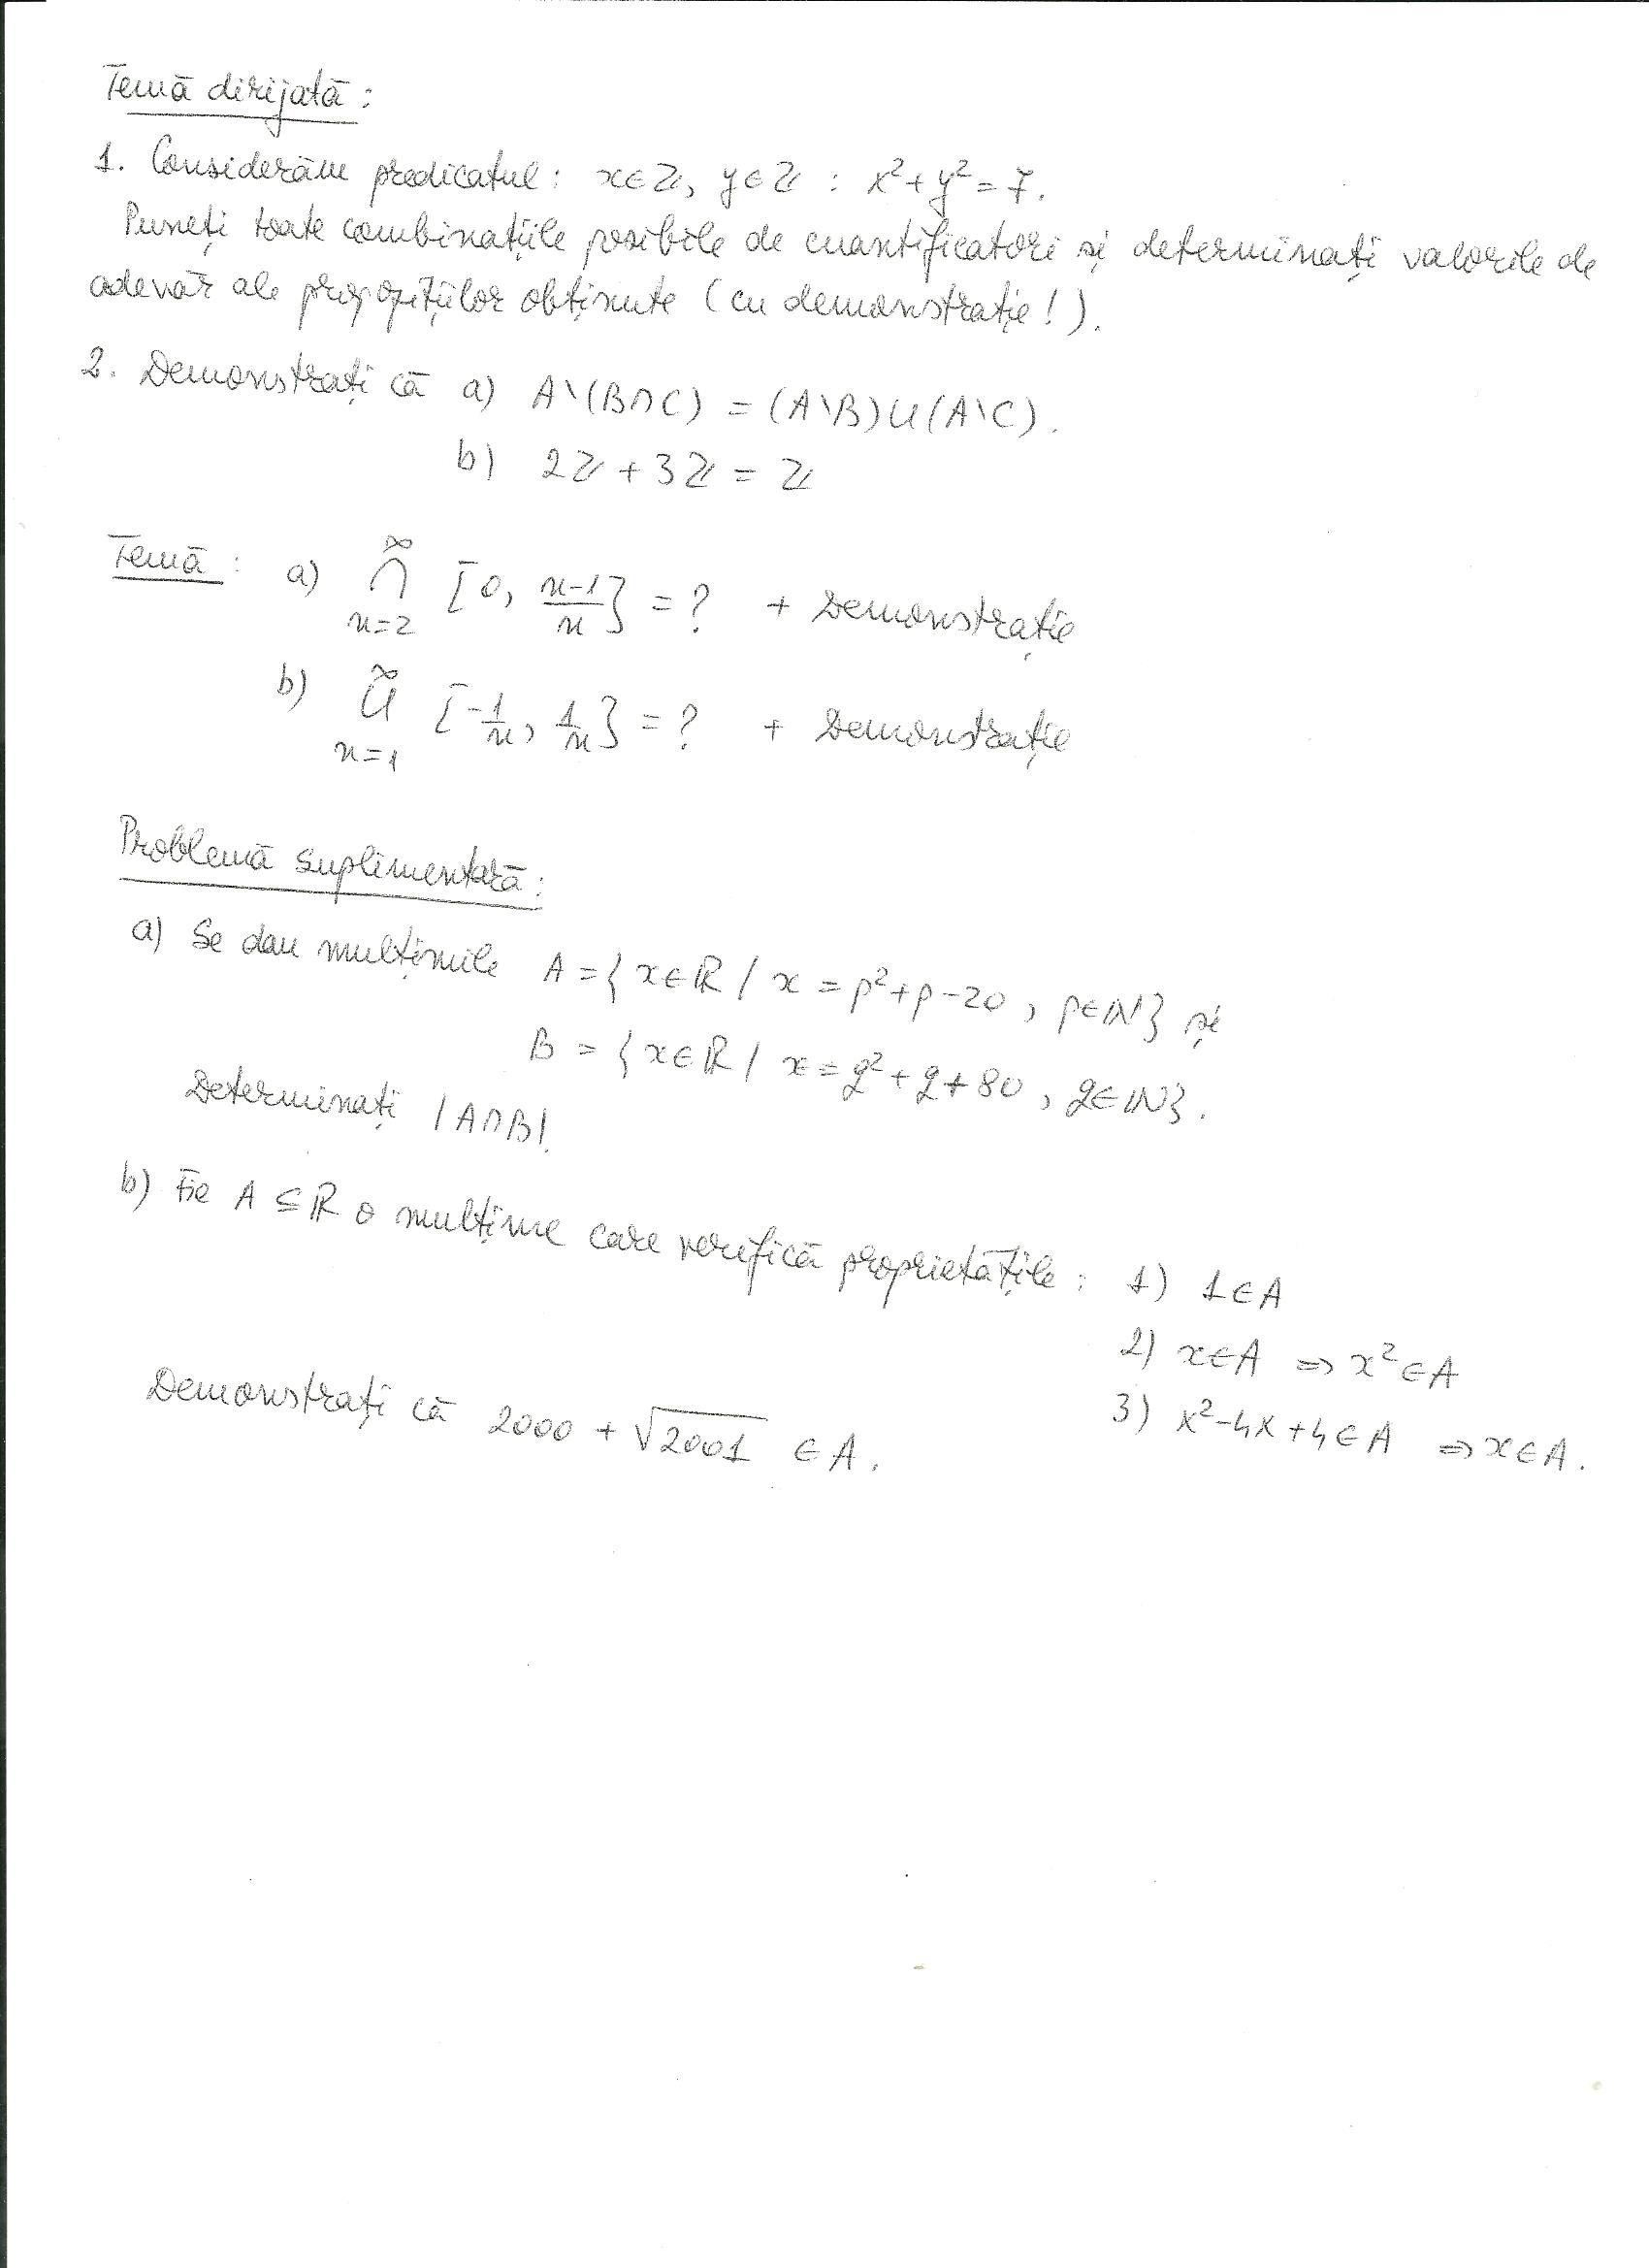 Temă dirijată:
1. Considerăm predicatul: x∈ℤ, y∈ℤ : x²+y² = 7.
Puneți toate combinațiile posibile de cuantificatori și determinați valorile de
adevăr ale propozițiilor obținute (cu demonstrație!).
2. Demonstrați că a) A\(B∩C) = (A\B)∪(A\C).
b) 2ℤ + 3ℤ = ℤ
Temă: a) ∞ ∩ n=2 [0, n-1/n] = ? + Demonstrație
b) ∞ ∪ n=1 [-1/n, 1/n] = ? + Demonstrație
Problemă suplimentară:
a) Se dau mulțimile A = {x∈ℝ / x = p²+p-20, p∈ℕ} și
B = {x∈ℝ / x = q²+q+80, q∈ℕ}.
Determinați |A∩B|.
b) Fie A ⊆ ℝ o mulțime care verifică proprietățile: 1) 1∈A
2) x∈A ⇒ x²∈A
3) x²-4x+4∈A ⇒ x∈A.
Demonstrați că 2000 + √2001 ∈ A.